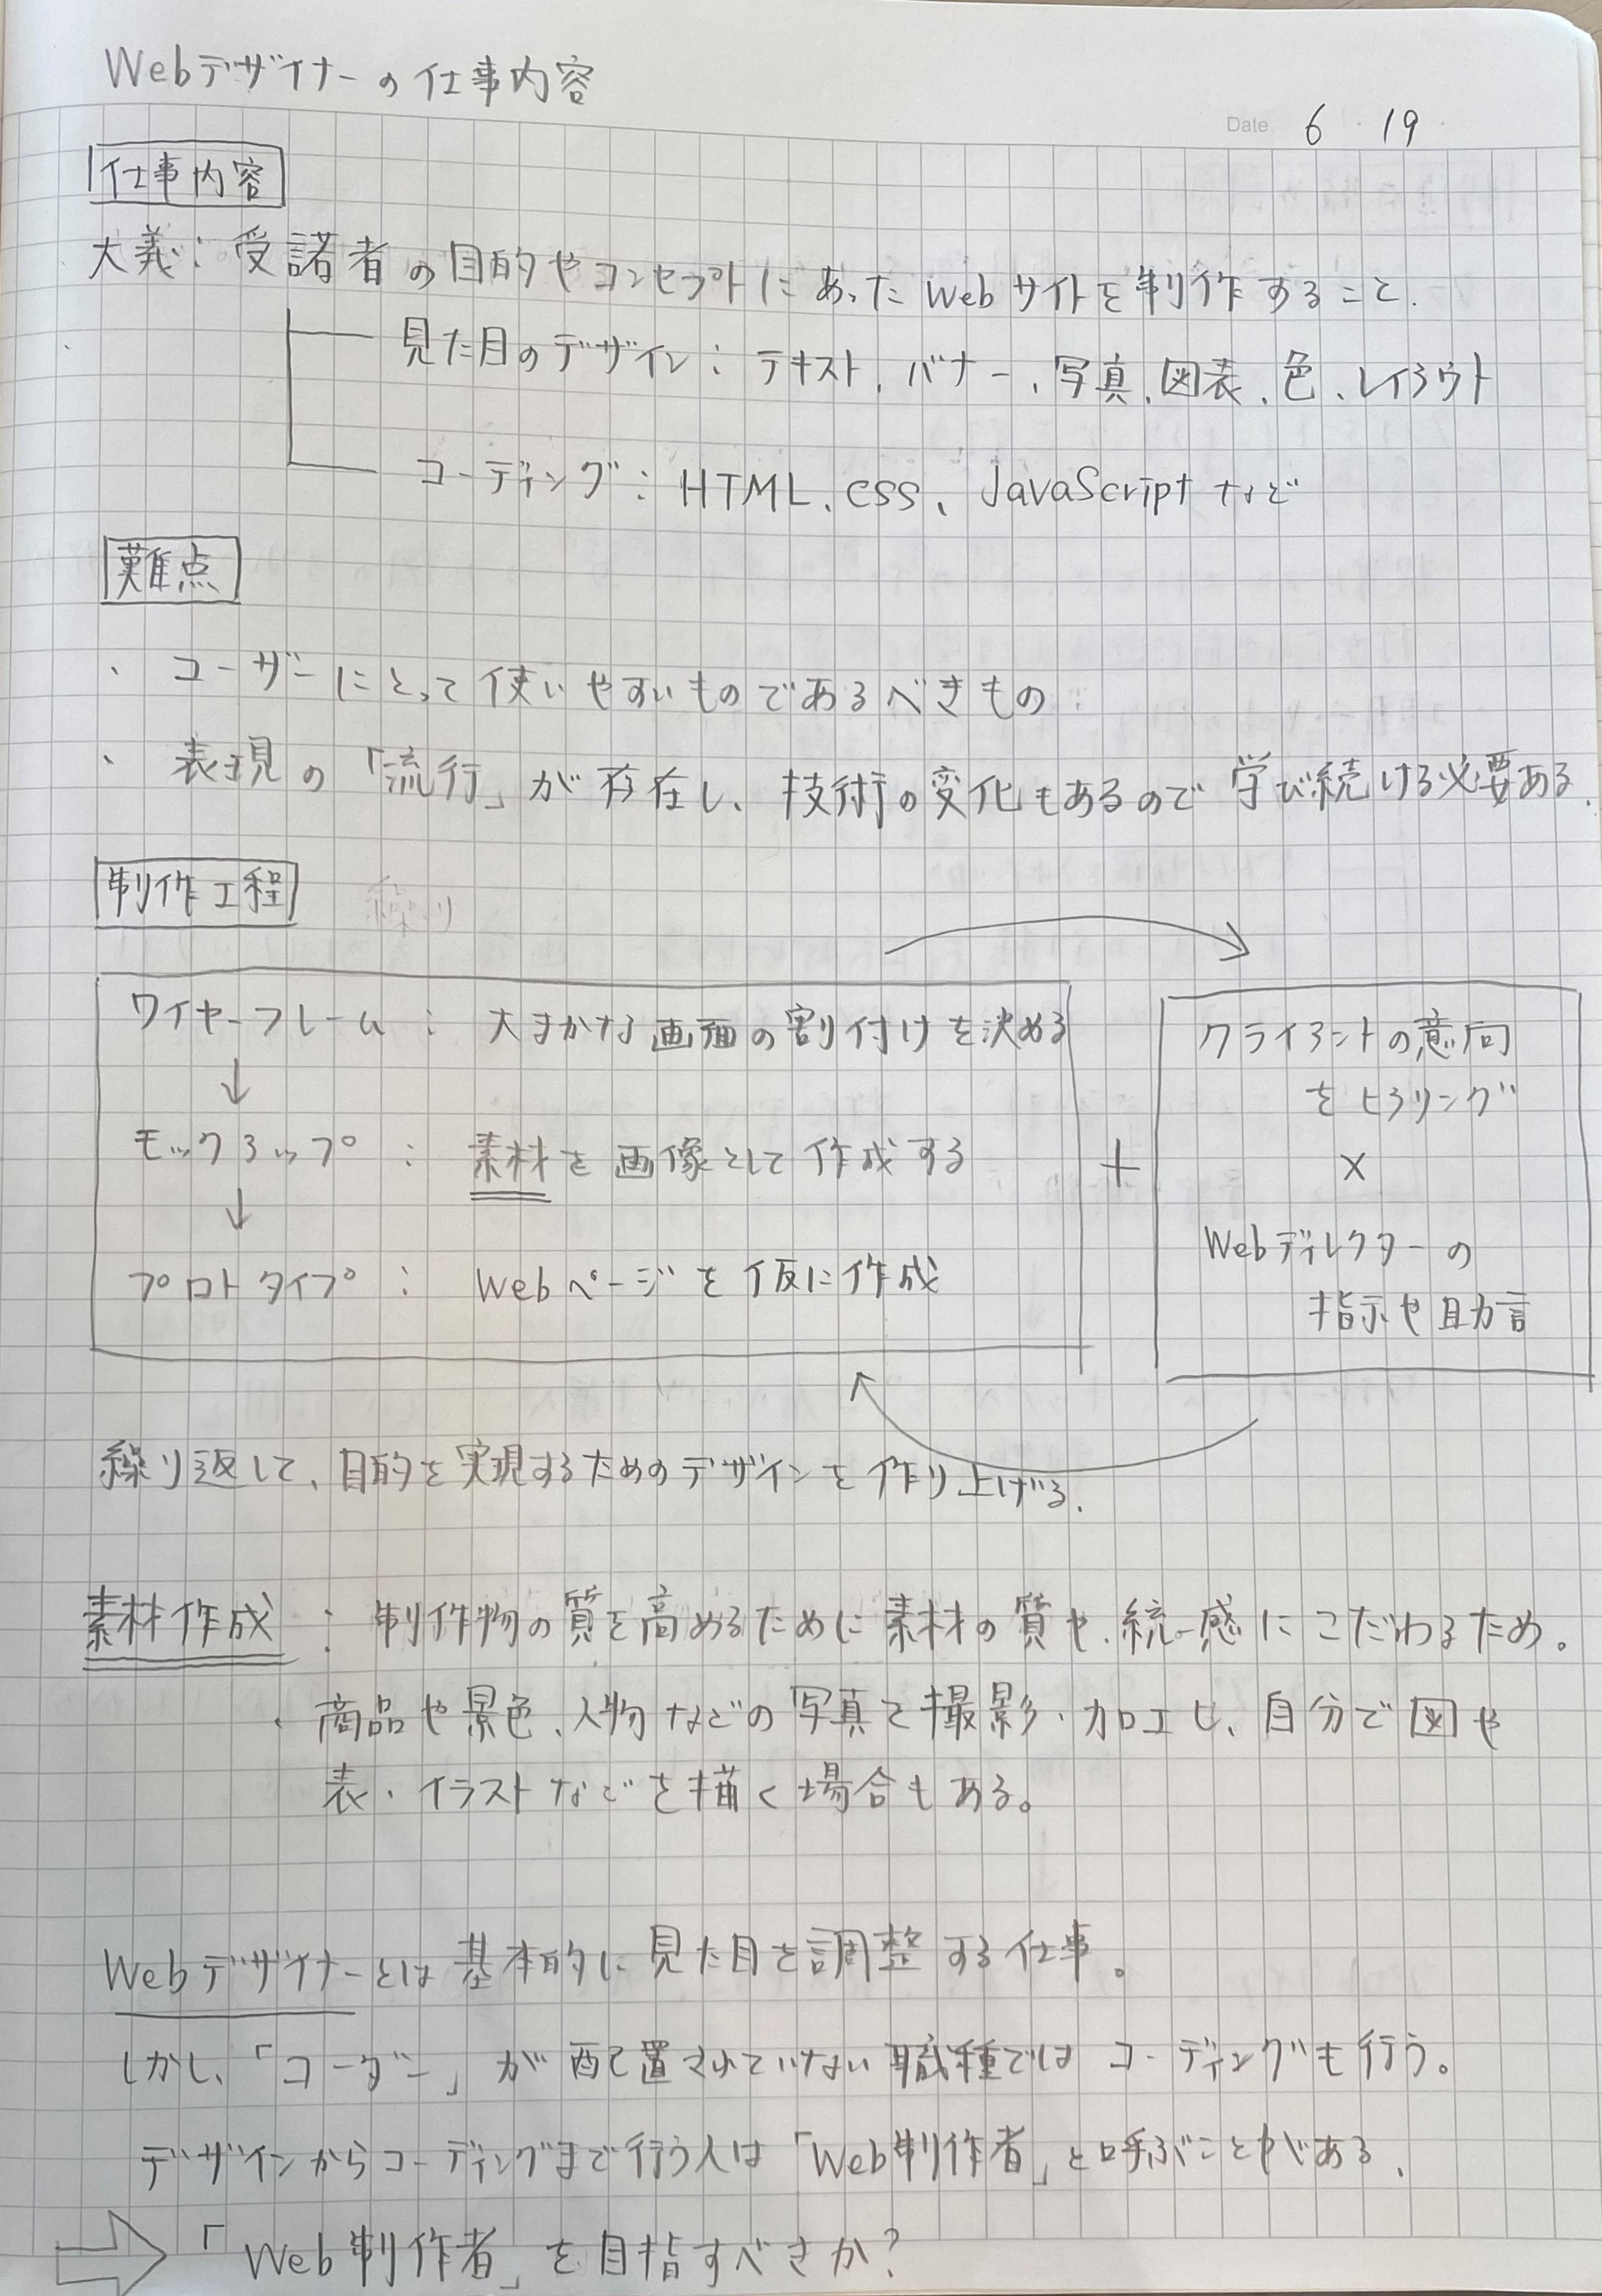 Webデザイナーの仕事内容
Date 6 19
仕事内容
大義：受諾者の目的やコンセプトにあったWebサイトを制作すること.
見た目のデザイン：テキスト、バナー、写真、図表、色、レイアウト
コーディング：HTML、CSS、JavaScriptなど
難点
・ユーザーにとって使いやすいものであるべきもの
・表現の「流行」が存在し、技術の変化もあるので学び続ける必要ある.
制作工程
ワイヤーフレーム：大まかな画面の割付けを決める
↓
モックアップ：素材を画像として作成する
↓
プロトタイプ：Webページを仮に作成
+
クライアントの意向
をヒアリング
×
Webディレクターの
指示や助言
繰り返して、目的を実現するためのデザインを作り上げる.
素材作成：制作物の質を高めるために素材の質や、統一感にこだわるため。
・商品や景色、人物などの写真を撮影・加工し、自分で図や
表・イラストなどを描く場合もある。
Webデザイナーとは基本的に見た目を調整する仕事。
しかし、「コーダー」が配置されていない職種ではコーディングも行う。
デザインからコーディングまで行う人は「Web制作者」と呼ぶことがある.
⇒「Web制作者」を目指すべきか？